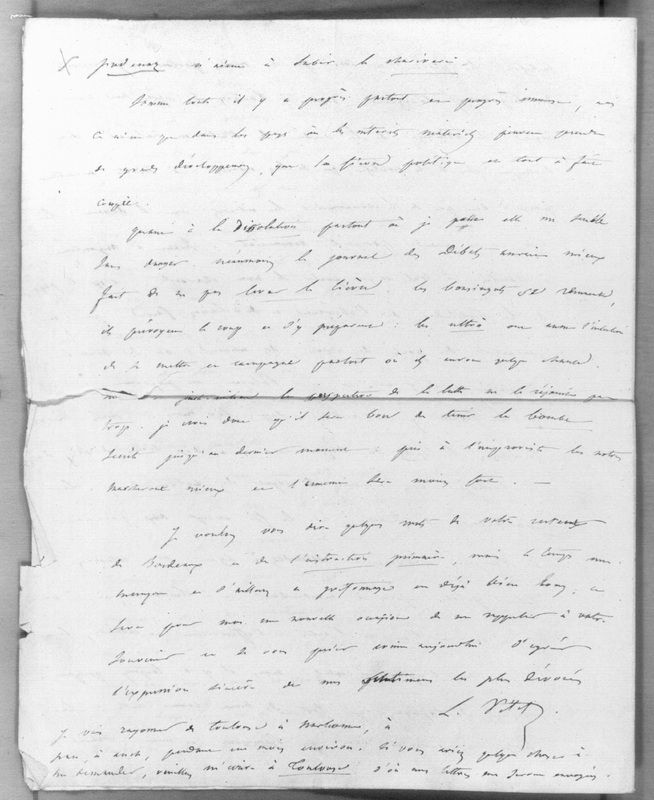 prudence et même à subir le charivari
Somme toute il y a progrès partout et progrès immense,
Ce n'est que dans les pays où les intérêts matériels peuvent prendre
de grands développemens, que la fièvre politique est tout à fait
coupée.
quant à la Dissolution partout où je passe elle me semble
sans danger. neanmoins le journal des Débats aurait mieux
fait de ne pas lever le lièvre. les bousingots se remuent,
ils prévoyent le coup et s'y préparent : les ultrà ont aussi l'intention
de se mettre en campagne partout où ils auront quelque chance.
la perspective de la lutte ne les réjouit pas
trop. je crois donc qu'il sera bon de tenir la bombe
secrète jusqu'au dernier moment : pris à l'improviste les notres
marcheront mieux et l'ennemi sera moins fort. —
Je voulais vous dire quelques mots de votre
de Bordeaux et de l'instruction primaire, mais le temps me
manque et d'ailleurs ce griffonnage est déjà bien long, ce
sera pour moi une nouvelle occasion de me rappeler à votre
souvenir et de vous prier comme aujourdhui d'agréer
l'expression sincère de mes sentimens les plus dévoués
L. Vitet.
Je vais rayonner de toulouse à Narbonne, à
pau, à auch, pendant un mois environ. Si vous aviez quelque chose à
me demander, veuillez m'écrire à Toulouse d'où mes lettres me seront envoyées.